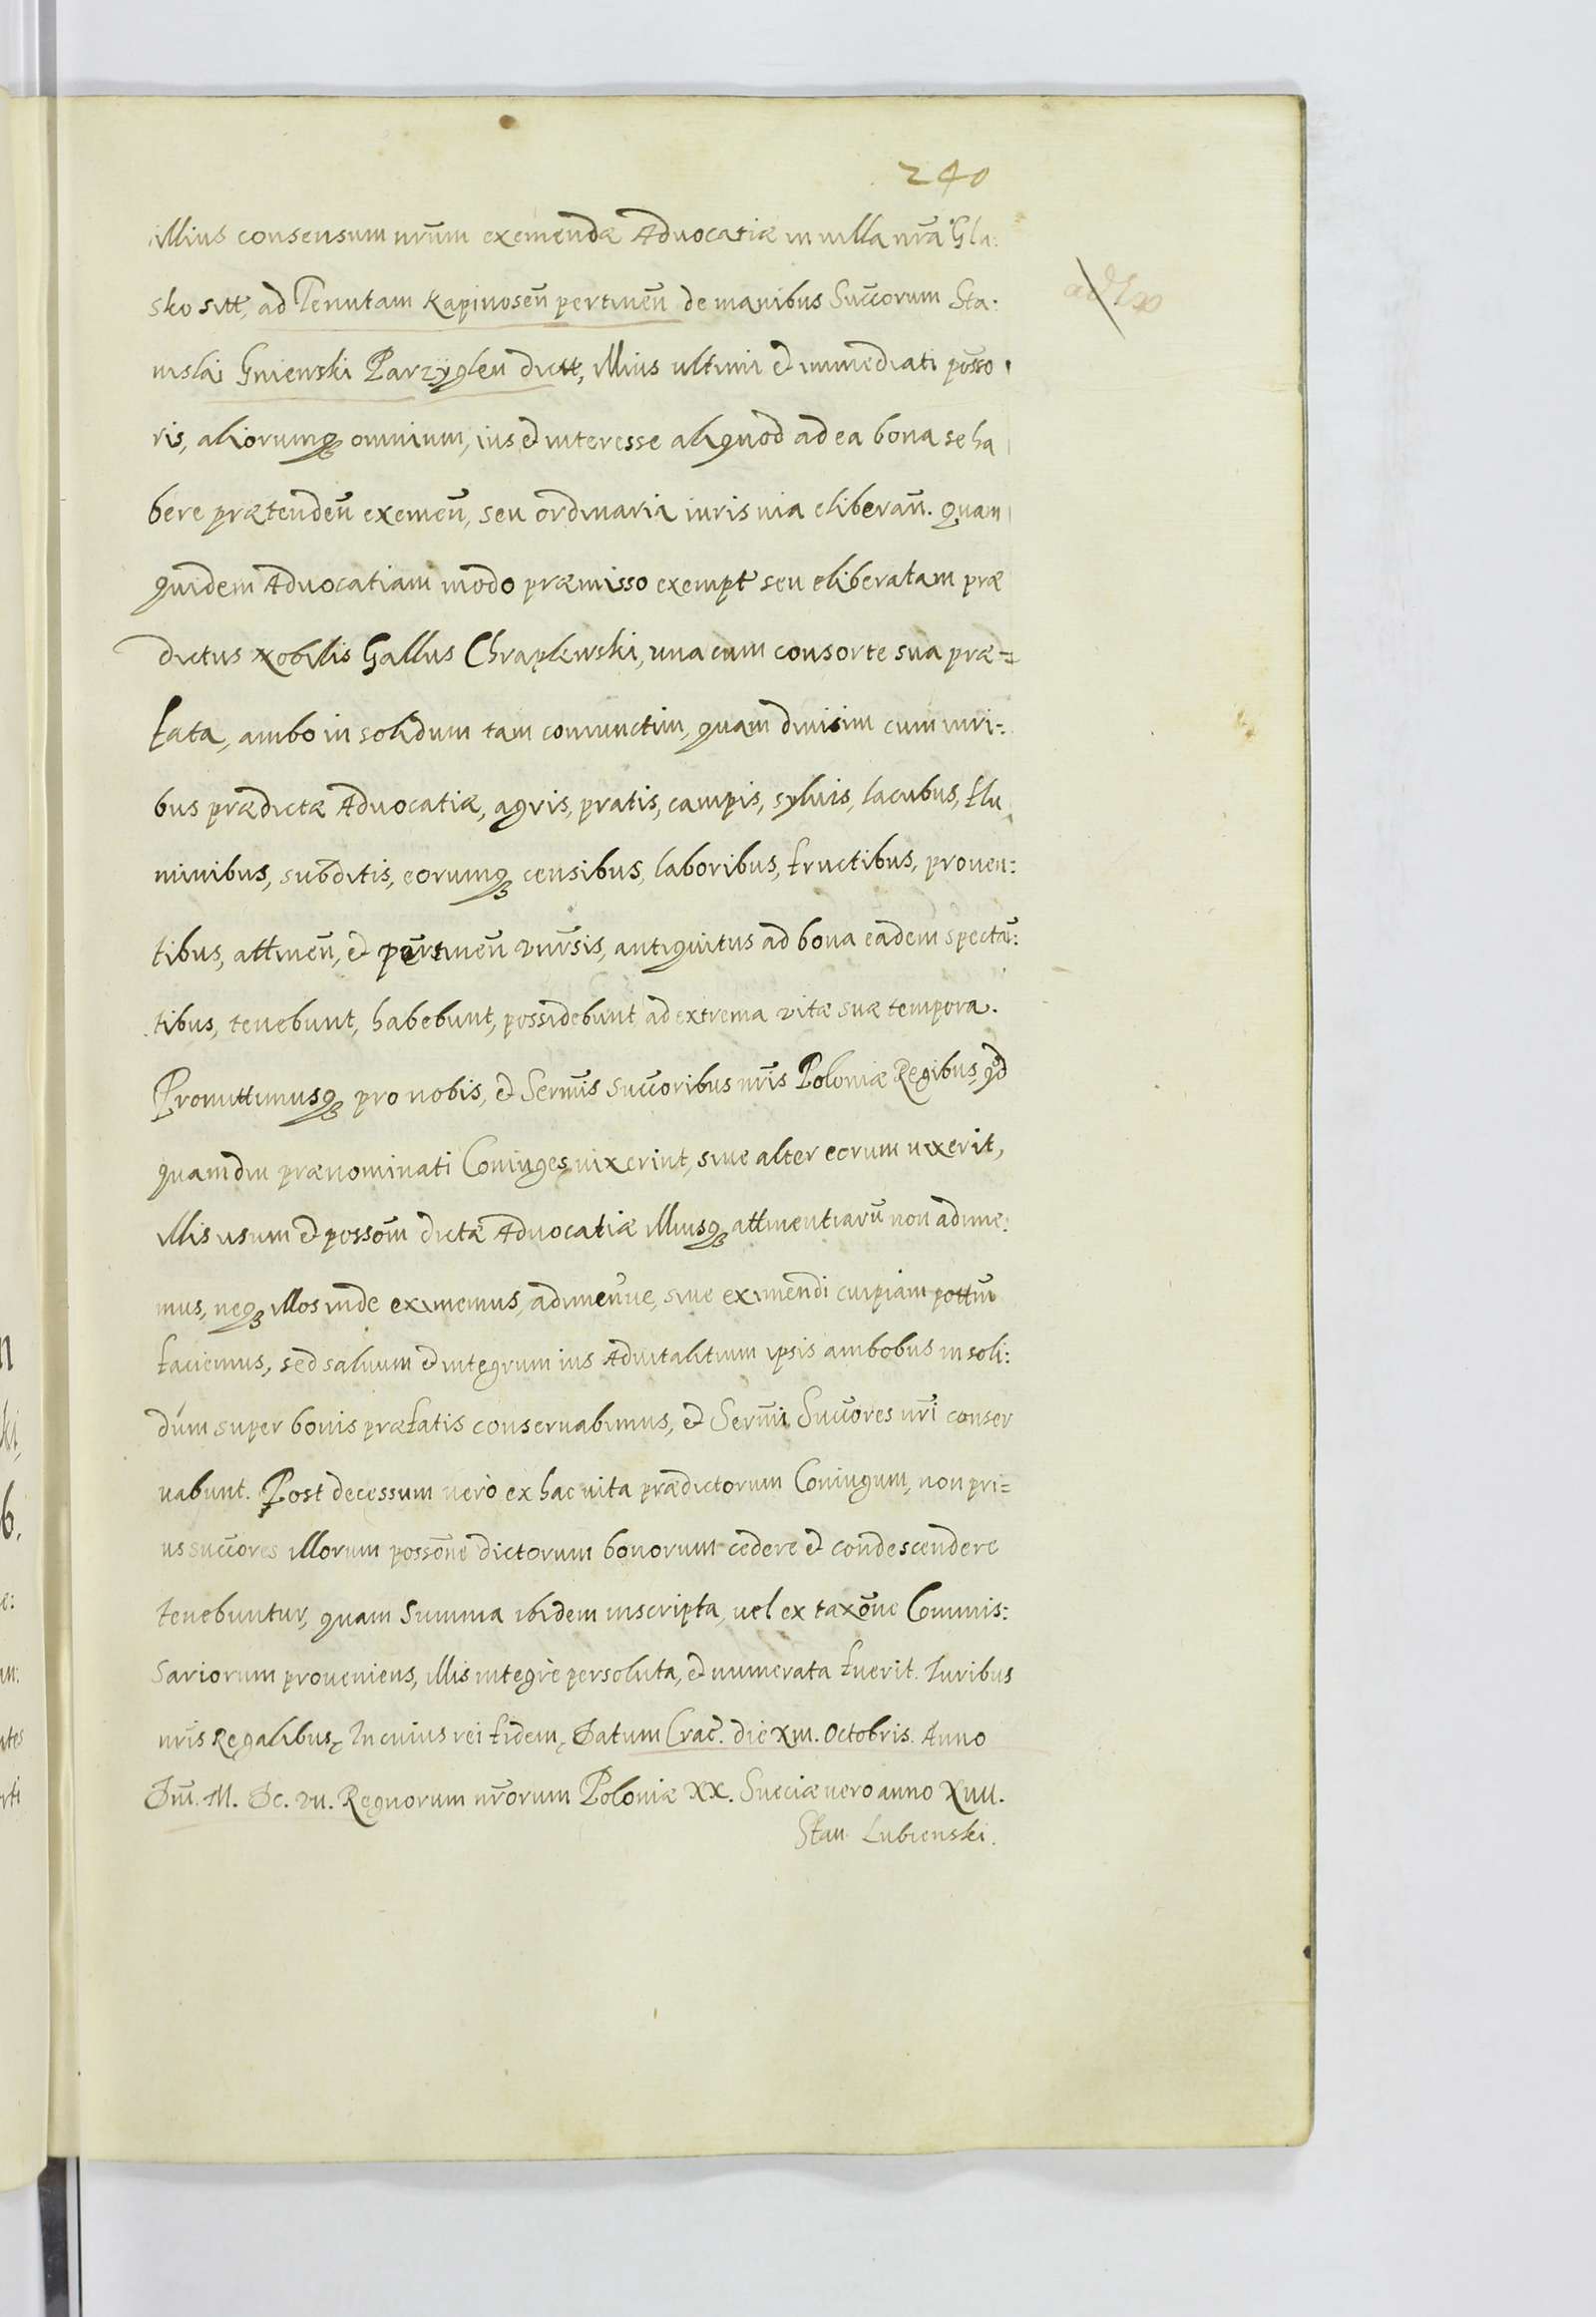 240
illius consensum nr̄um exemendæ Advocatiæ in villa nr̄a Glu:
sko sitt, ad Tenutam Kapinoseñ pertineñ de manibus Succorum Sta:
nislai Gnienski Parzÿgleu dictt, illius ultimi et immediati posso
ris, aliorumq̨ omnium, ius et interesse aliquod ad ea bona se ha
bere prætendeñ exemeñ, seu ordinaria iuris via eliberañ. Quam
quidem Advocatiam modo præmisso exempt seu eliberatam præ
dictus Nobilis Gallus Chraplewski, una cum consorte sua præ=
fata, ambo in solidum tam coniunctim, quam divisim cum iuri=
bus prædictæ Advocatiæ, agris, pratis, campis, sylvis, lacubus, flu
minibus, subditis, eorumq̨ censibus, laboribus, fructibus, proven:
tibus, attineñ, et pertineñ vnīrsis, antiquitus ad bona eadem spectañ:
tibus, tenebunt, habebunt, possidebunt ad extrema vitæ suæ tempora.
Promittimusq̨ pro nobis, et Serm̄is succoribus nr̄is Poloniæ Regibus, qd
quamdiu prænominati Coniuges vixerint, sive alter eorum vixerit,
illis usum et possom̄ dictæ Advocatiæ illiusq̨ attinentiarū non adime:
mus, neq̨ illos inde eximemus, adimeñve, sive eximendi cuipiam pottm̄
faciemus, sed salvum et integrum ius Advitalitium ipsis ambobus in soli:
dum super bonis præfatis conservabimus, et Serm̄i Succores nr̄i conser
vabunt. Post decessum verò ex hac vita prædictorum Coniugum, non pri=
us succores illorum possone dictorum bonorum cedere et condescendere
tenebuntur, quam Summa ibidem inscripta, vel ex taxone Commis:
sariorum proveniens, illis integrè persoluta, et numerata fuerit. Iuribus
nr̄is Regalibus, In cuius rei fidem, Datum Crac̄. die XIII. Octobris. Anno
Dn̄i. M. Dc. vii. Regnorum nr̄orum Poloniæ XX. Sueciæ vero anno XIIII.
Stan Lubienski.